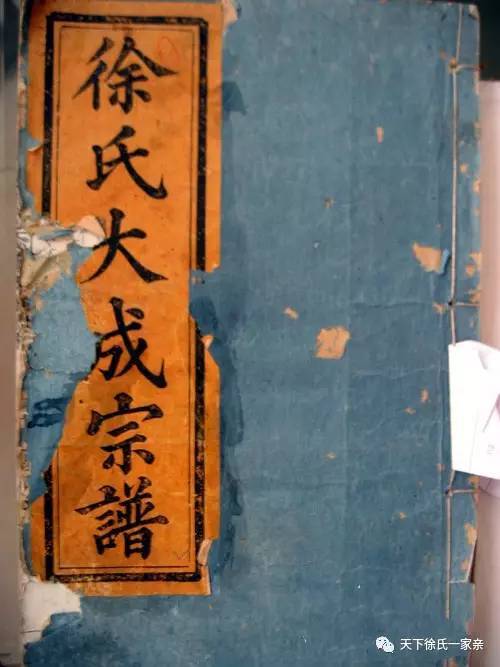 徐氏大成宗譜
天下徐氏一家亲